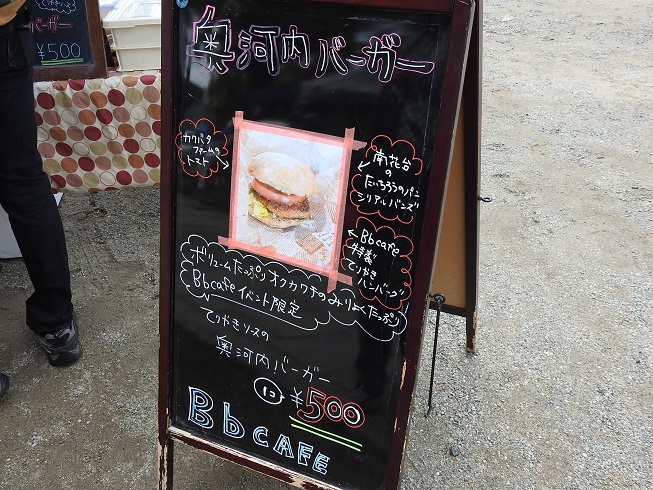 奥河内バーガー
カワバタ
ファームの
トマト
南花台
の
だいちろうのパン
シリアルバンズ
Bbcafe
特製
てりやき
ハンバーグ
ボリュームたっぷり オクカワチのみりょくたっぷり
Bbcafe イベント限定
てりやきソースの
奥河内バーガー
1コ ¥500
Bb CAFE
バーガー
¥500